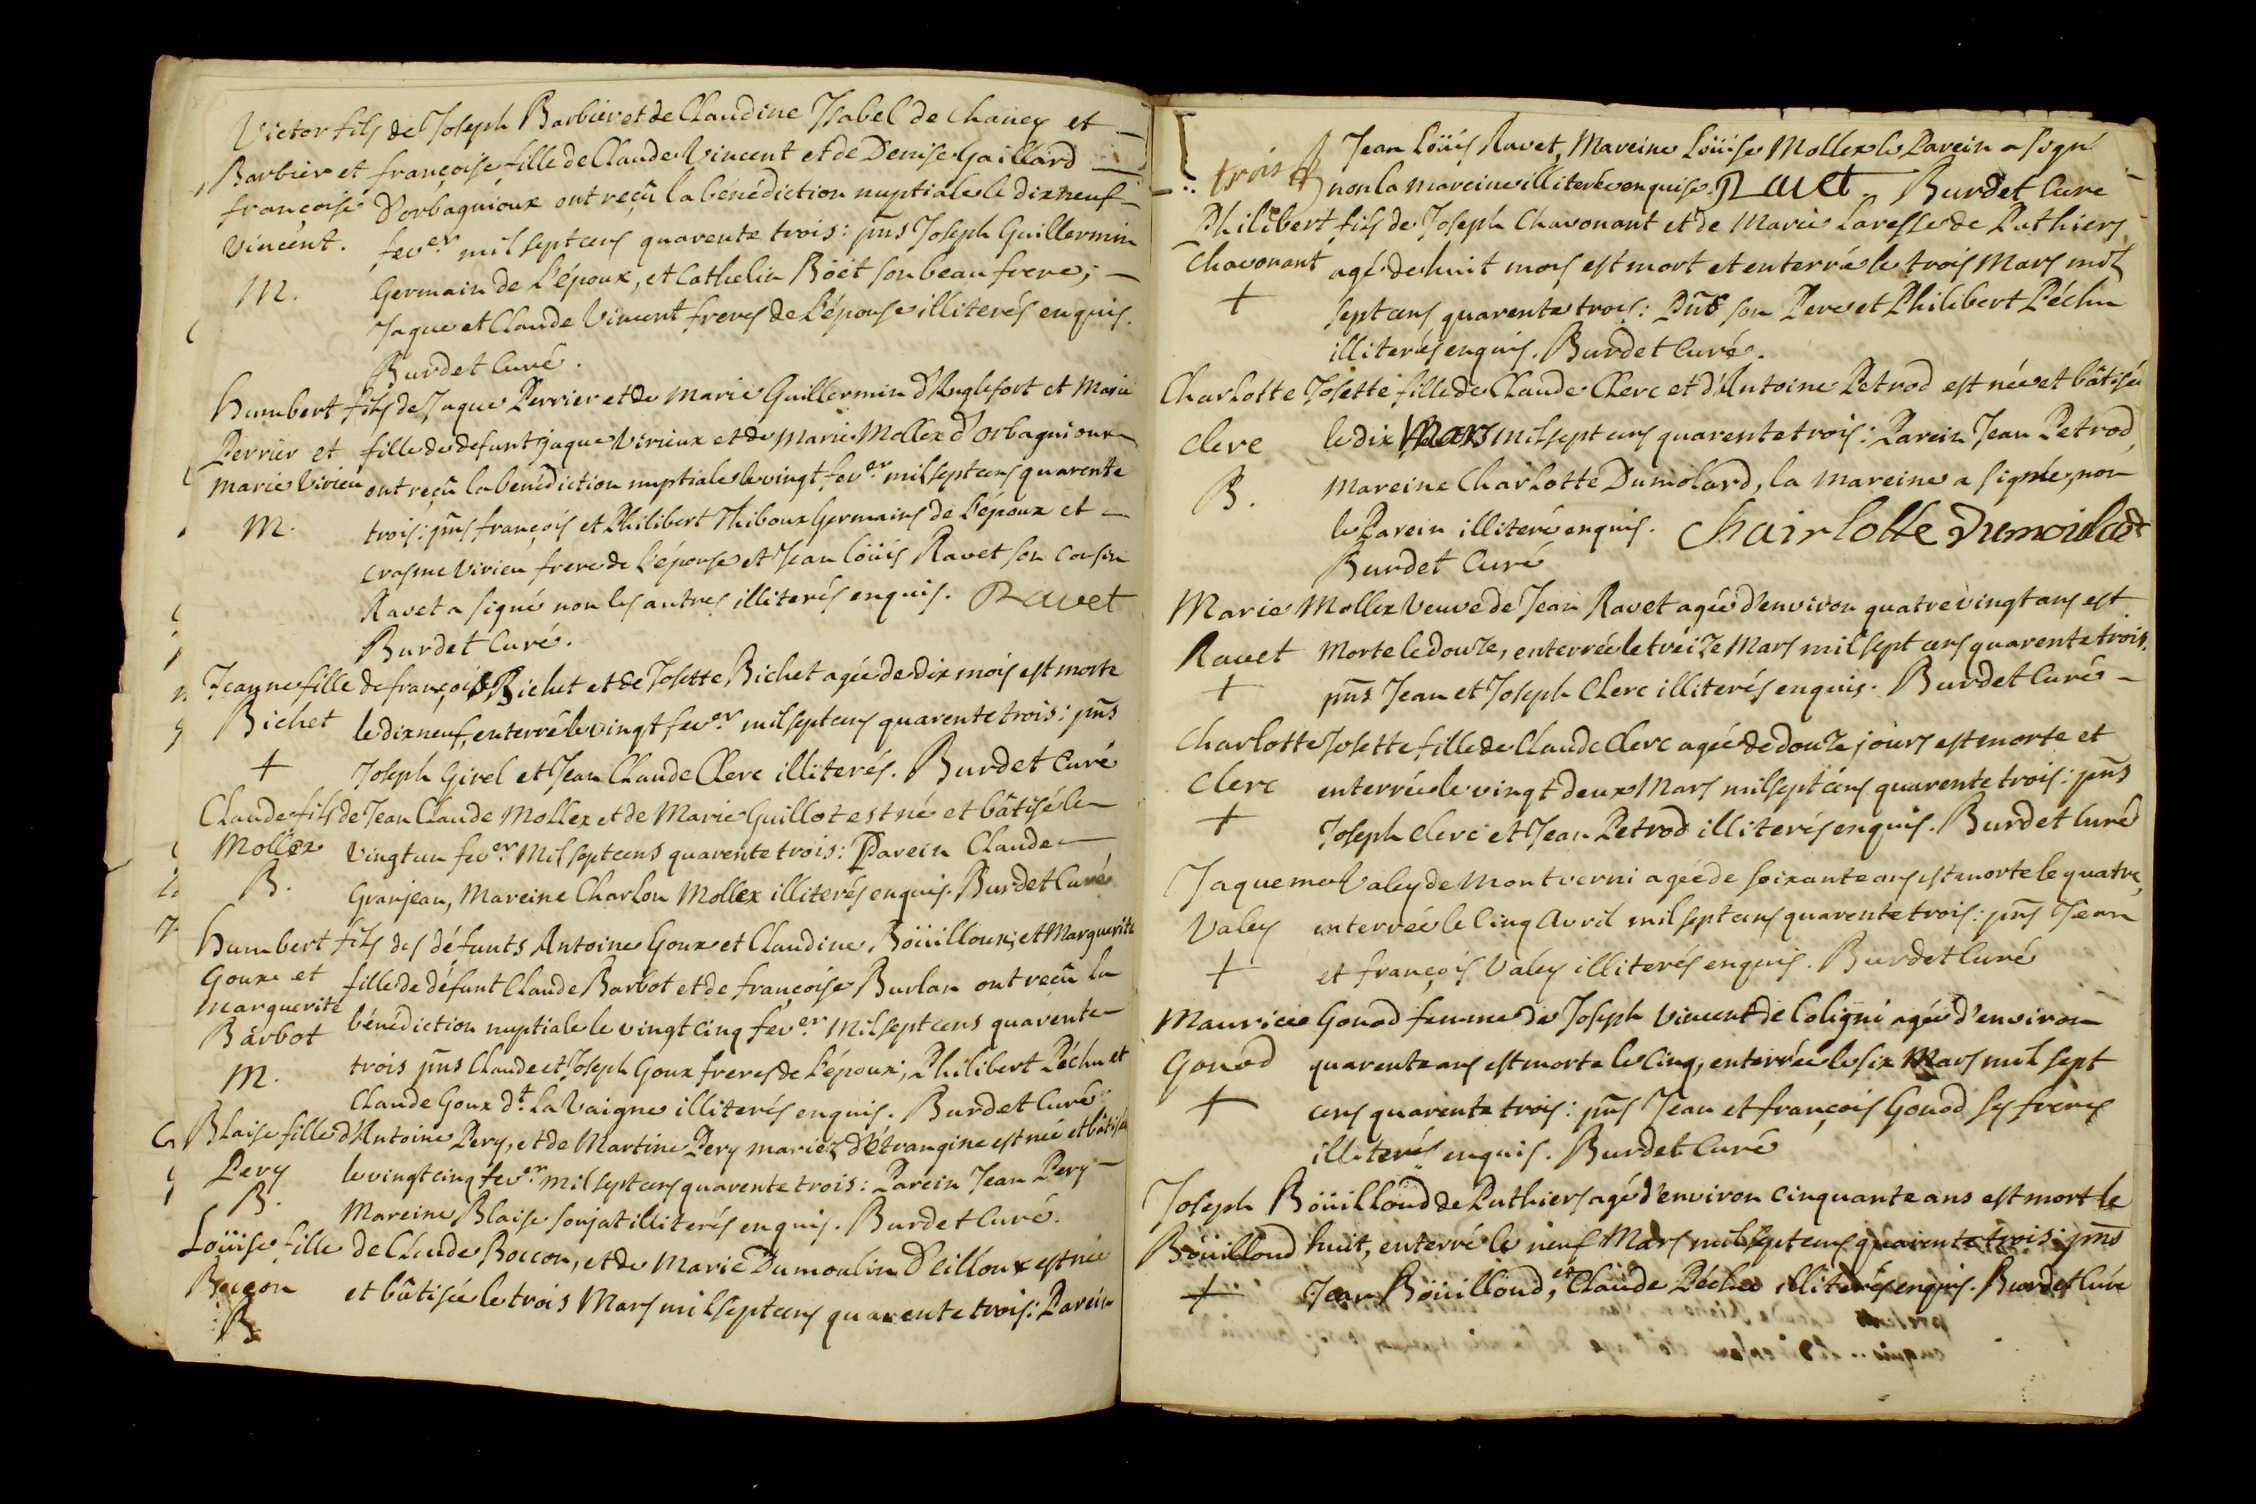 Victor fils de Joseph Barbier et de Claudine Isabel de Chanex et
Barbier et françoise fille de Claude Vincent et de Denise Gaillard
françoise D'orbagnioux ont reçû la bénédiction nuptiale le dixneuf
Vincent. fev.er mil sept cens quarente trois: pns Joseph Guillermin
M. Germain de L'époux, et Cathelin Böet son beau frere;
Jaque et Claude Vincent freres de L'épouse illiterés enquis.
Burdet Curé.
Humbert fils de Jaque Perrier et de Marie Guillermin d'Anglefort et Marie
Perrier et fille de defunt jaque Virieux et de Marie Mollex D'orbagnioux
Marie Virieu ont reçû la bénédiction nuptiale le vingt fev.er mil sept cens quarente
M. trois: pns françois et Philibert Thiboux Germains de L'époux et
Erasme Virieu frere de L'épouse et Jean Löüis Ravet son cousin
Ravet a signé non les autres illiterés enquis. Ravet
Burdet Curé.
Jeanne fille de françois Bichet et de Josette Bichet agée de dix mois est morte
Bichet le dixneuf, enterré le vingt fev.er mil sept cens quarente trois: pns
+ Joseph Girel et Jean Claude Clerc illiterés. Burdet Curé
Claude fils de Jean Claude Mollex et de Marie Guillot est né et bâtisé le
Mollex vingt un fev.er Mil sept cens quarente trois: Parein Claude
B. Granjean, Mareine Charlon Mollex illiterés enquis. Burdet Curé
Humbert fils des défunts Antoine Goux et Claudine Böüilloux; et Marguerite
Goux et fille de défunt Claude Barbot et de françoise Burlan ont reçû la
Marguerite bénédiction nuptiale le vingt cinq fev.er Mil sept cens quarente
Barbot trois pns Claude et Joseph Goux freres de L'époux; Philibert Péchu et
M. Claude Goux d.t La Vaigne illiterés enquis. Burdet Curé.
Blaise fille d'Antoine Pery, et de Martine Pery mariéz d'étrangine est née et bâtisée
Pery le vingt cinq fev.er mil sept cens quarente trois: Parein Jean Pery
B. Mareine Blaise Sonjat illiterés enquis. Burdet Curé.
Löüise fille de Claude Boccon, et de Marie Dumoulin D'eilloux est née
Boccon et bâtisée le trois Mars mil sept cens quarente trois: Parein
B
trois Jean Löüis Ravet, Mareine Löüise Mollex le Parein a signé
non la mareine illiterée enquise. Ravet Burdet Curé
Philibert fils de Joseph Chavonant et de Marie Laresse de Puthiers
Chavonant agé de huit mois est mort et enterré le trois Mars mil
+ sept cens quarente trois: Pns son Pere et Philibert Péchu
illiterés enquis. Burdet Curé.
Charlotte Josette fille de Claude Clerc et d'Antoine Petrod est née et bâtisée
Clerc le dix Mars mil sept cens quarente trois: Parein Jean Petrod,
B. Mareine Charlotte Dumolard, la Mareine a signée, non
le Parein illiteré enquis. Chairlotte Dumoulard
Burdet Curé
Marie Mollex Veuve de Jean Ravet agée d'environ quatre vingt ans est
Ravet Morte le douze, enterrée le tréize Mars mil sept cens quarente trois.
+ pns Jean et Joseph Clerc illiterés enquis. Burdet Curé
Charlotte Josette fille de Claude Clerc agée de douze jours est morte et
Clerc enterrée le vingt deux Mars mil sept cens quarente trois: pns
+ Joseph Clerc et Jean Petrod illiterés enquis. Burdet Curé
Jaqueme Valey de Montverni agée de soixante ans est morte le quatre,
Valey enterrée le Cinq Avril mil sept cens quarente trois: pns Jean
+ et françois Valey illiterés enquis. Burdet Curé
Maurice Gonod femme de Joseph Vincent de Coligni agée d'environ
Gonod quarente ans est morte le Cinq, enterrée le six Mars mil sept
+ cens quarente trois: pns Jean et françois Gonod ses freres
illiterés enquis. Burdet Curé
Joseph Böüilloud de Puthiers agé d'environ cinquante ans est mort le
Böüilloud huit, enterré le neuf Mars mil sept cens quarente trois: pns
+ Jean Böüilloud, et Claude Péchu illiterés enquis. Burdet Curé